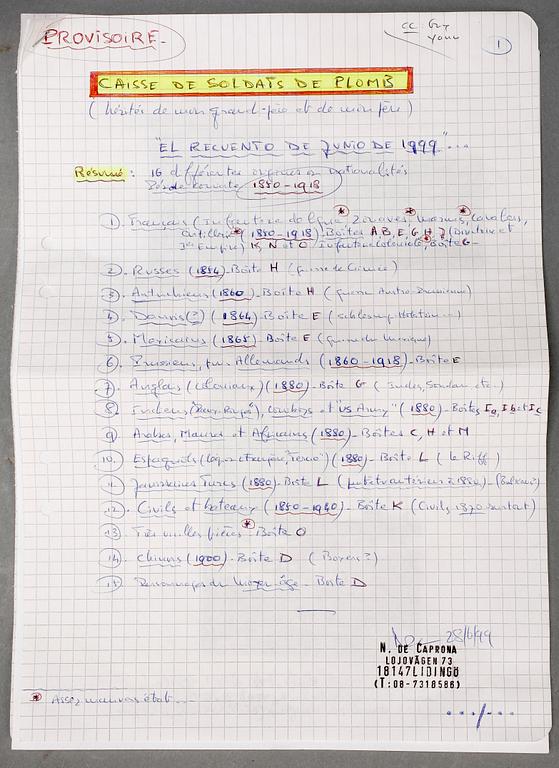 PROVISOIRE.
cc Guy
1
CAISSE DE SOLDATS DE PLOMB
(hérités de mon grand-père et de mon père)
"EL RECUENTO DE JUNIO DE 1999"...
Résumé : 16 différentes origines ou nationalités
Période 1850-1918
1. Français (Infanterie de ligne* Zouaves* marins* cavaliers,
(1850-1918) Boîtes A, B, E, G, H, J (Directoire et
1er Empire) K, N et O Infanterie coloniale* Boîte G-
2. Russes (1854) - Boîte H (guerre de Crimée)
3. Autrichiens (1860) - Boîte H (guerre Austro-Prussienne)
4. Danois (?) (1864) - Boîte E (Schleswig-Holstein...)
5. Mexicains (1865) - Boîte E (guerre du Mexique)
6. Prussiens, puis Allemands (1860-1918) - Boîte E
7. Anglais (coloniaux) (1880) - Boîte G (Indes, Soudan etc.)
8. Indiens (Peaux-Rouges), cowboys et "US Army" (1880) - Boîtes Ia, Ib et Ic
9. Arabes, Maures et Africains (1880) - Boîtes C, H et M
10. Espagnols (légion étrangère, "Tercio") (1880) - Boîte L (le Riff)
11. Janissaires Turcs (1880) - Boîte L (plutôt antérieurs à 1880) - (Balkans?)
12. Civils et bateaux (1850-1940) - Boîte K (Civils 1870 surtout)
13. Très vieilles pièces* - Boîte O
14. Chinois (1900) - Boîte D (Boxers?)
15. Personnages du Moyen-âge - Boîte D
28/6/99
N. DE CAPRONA
LOJOVÄGEN 73
18147 LIDINGÖ
(T: 08-7318586)
* Assez mauvais état...
.../...